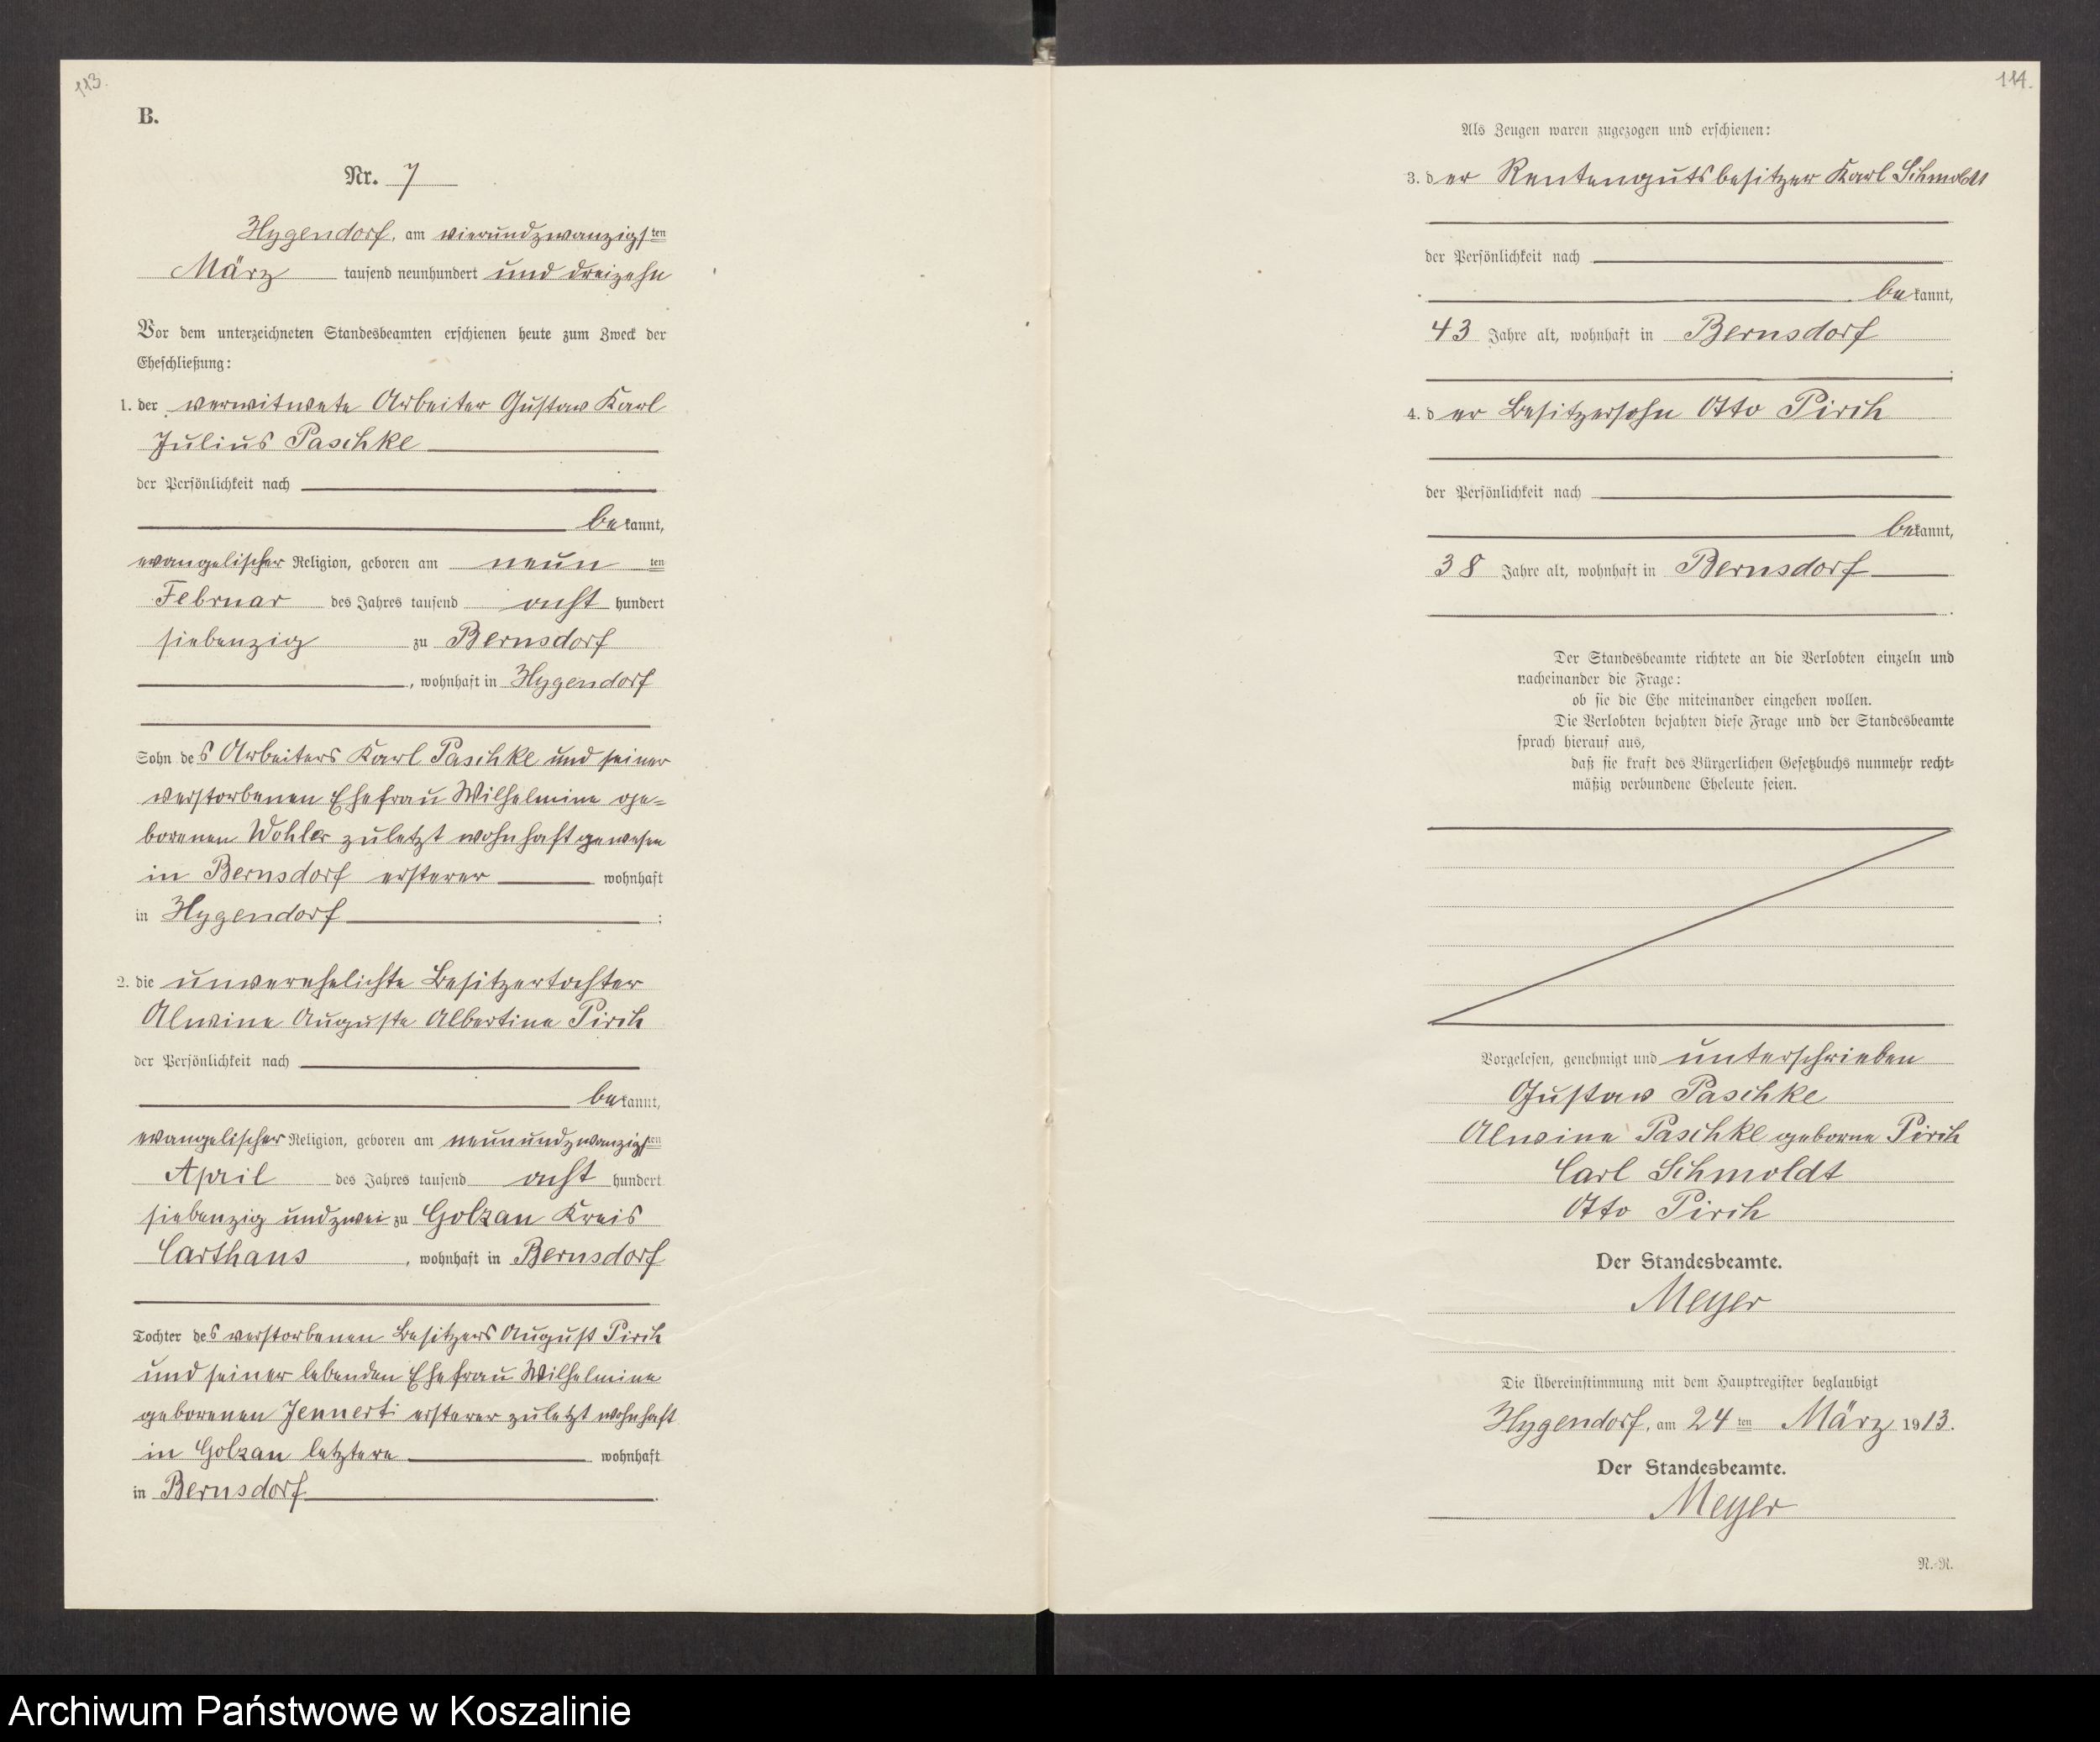 113.
B.
Nr. 7
Hygendorf, am vierundzwanzigsten
März tausend neunhundert und dreizehn
Vor dem unterzeichneten Standesbeamten erschienen heute zum Zweck der
Eheschließung:
1. der verwitwete Arbeiter Gustav Karl
Julius Paschke
der Persönlichkeit nach
bekannt,
evangelischer Religion, geboren am neunten
Februar des Jahres tausend acht hundert
siebenzig zu Bernsdorf
, wohnhaft in Hygendorf
Sohn des Arbeiters Karl Paschke und seiner
verstorbenen Ehefrau Wilhelmine ge-
borenen Wohler zuletzt wohnhaft gewesen
in Bernsdorf ersterer wohnhaft
in Hygendorf ;
2. die unverehelichte Besitzertochter
Alwine Auguste Albertine Pirch
der Persönlichkeit nach
bekannt,
evangelischer Religion, geboren am neunundzwanzigsten
April des Jahres tausend acht hundert
siebenzig und zwei zu Golzau Kreis
Carthaus , wohnhaft in Bernsdorf
Tochter des verstorbenen Besitzers August Pirch
und seiner lebenden Ehefrau Wilhelmine
geborenen Jennert ersterer zuletzt wohnhaft
in Golzau letztere wohnhaft
in Bernsdorf .
114.
Als Zeugen waren zugezogen und erschienen:
3. der Rentengutsbesitzer Karl Schmoldt
der Persönlichkeit nach
bekannt,
43 Jahre alt, wohnhaft in Bernsdorf
;
4. der Besitzersohn Otto Pirch
der Persönlichkeit nach
bekannt,
38 Jahre alt, wohnhaft in Bernsdorf
.
Der Standesbeamte richtete an die Verlobten einzeln und
nacheinander die Frage:
ob sie die Ehe miteinander eingehen wollen.
Die Verlobten bejahten diese Frage und der Standesbeamte
sprach hierauf aus,
daß sie kraft des Bürgerlichen Gesetzbuchs nunmehr recht-
mäßig verbundene Eheleute seien.
Vorgelesen, genehmigt und unterschrieben
Gustav Paschke
Alwine Paschke geborne Pirch
Carl Schmoldt
Otto Pirch
Der Standesbeamte.
Meyer
Die Übereinstimmung mit dem Hauptregister beglaubigt
Hygendorf, am 24 ten März 1913.
Der Standesbeamte.
Meyer
N.-R.
Archiwum Państwowe w Koszalinie